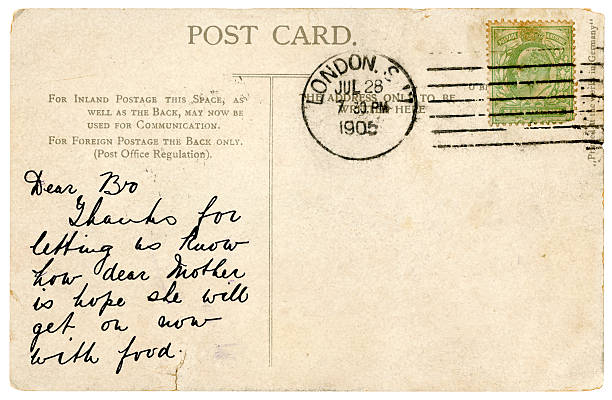 POST CARD.
FOR INLAND POSTAGE THIS SPACE, AS
WELL AS THE BACK, MAY NOW BE
USED FOR COMMUNICATION.
FOR FOREIGN POSTAGE THE BACK ONLY.
(Post Office Regulation).
THE ADDRESS ONLY TO BE
WRITTEN HERE
LONDON. S.W
JUL 28
7.30 PM
1905
Dear Bro
Thanks for
letting us know
how dear Mother
is hope she will
get on now
with food.
Germany"